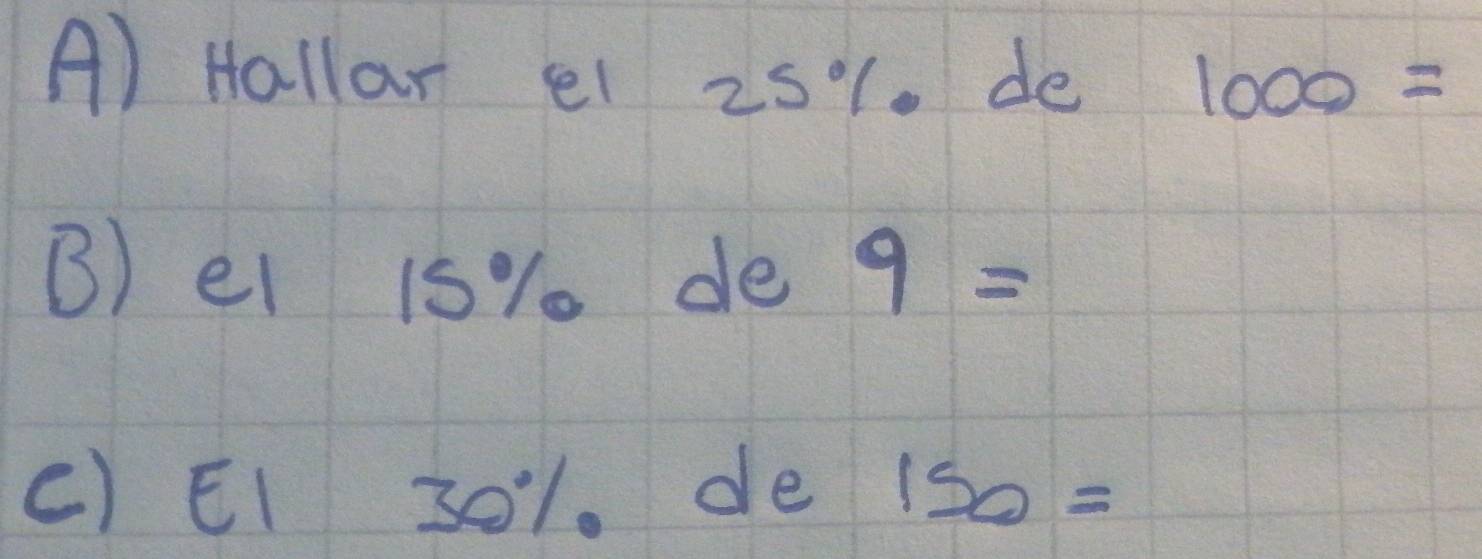 A) Hallar el 25% de 1000 =
B) el 15% de 9 =
C) El 30% de 150 =